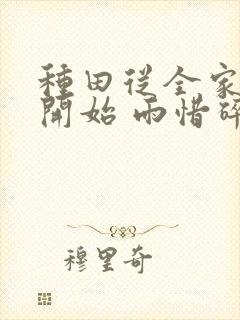 種田從全家
開始 雨惜碎
穆里奇